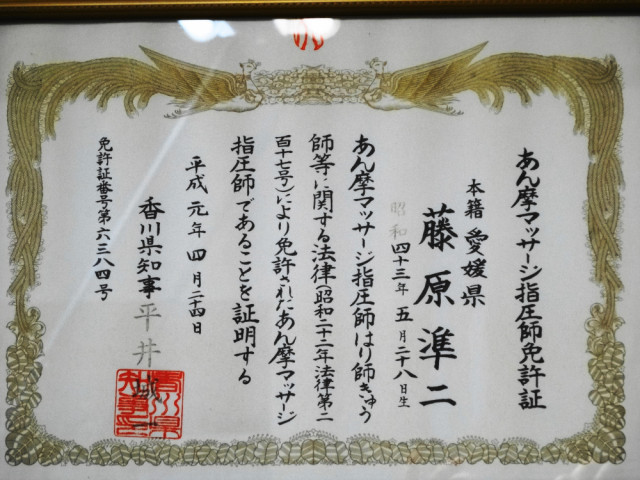 あん摩マッサージ指圧師免許証
本籍 愛媛県
藤原準二
昭和四十三年五月二十八日生
あん摩マッサージ指圧師はり師きゅう
師等に関する法律(昭和二十二年法律第二
百十七号)により免許されたあん摩マッサージ
指圧師であることを証明する
平成元年四月二十四日
香川県知事 平井城一
免許証番号第六三八四号
香川県
知事之印